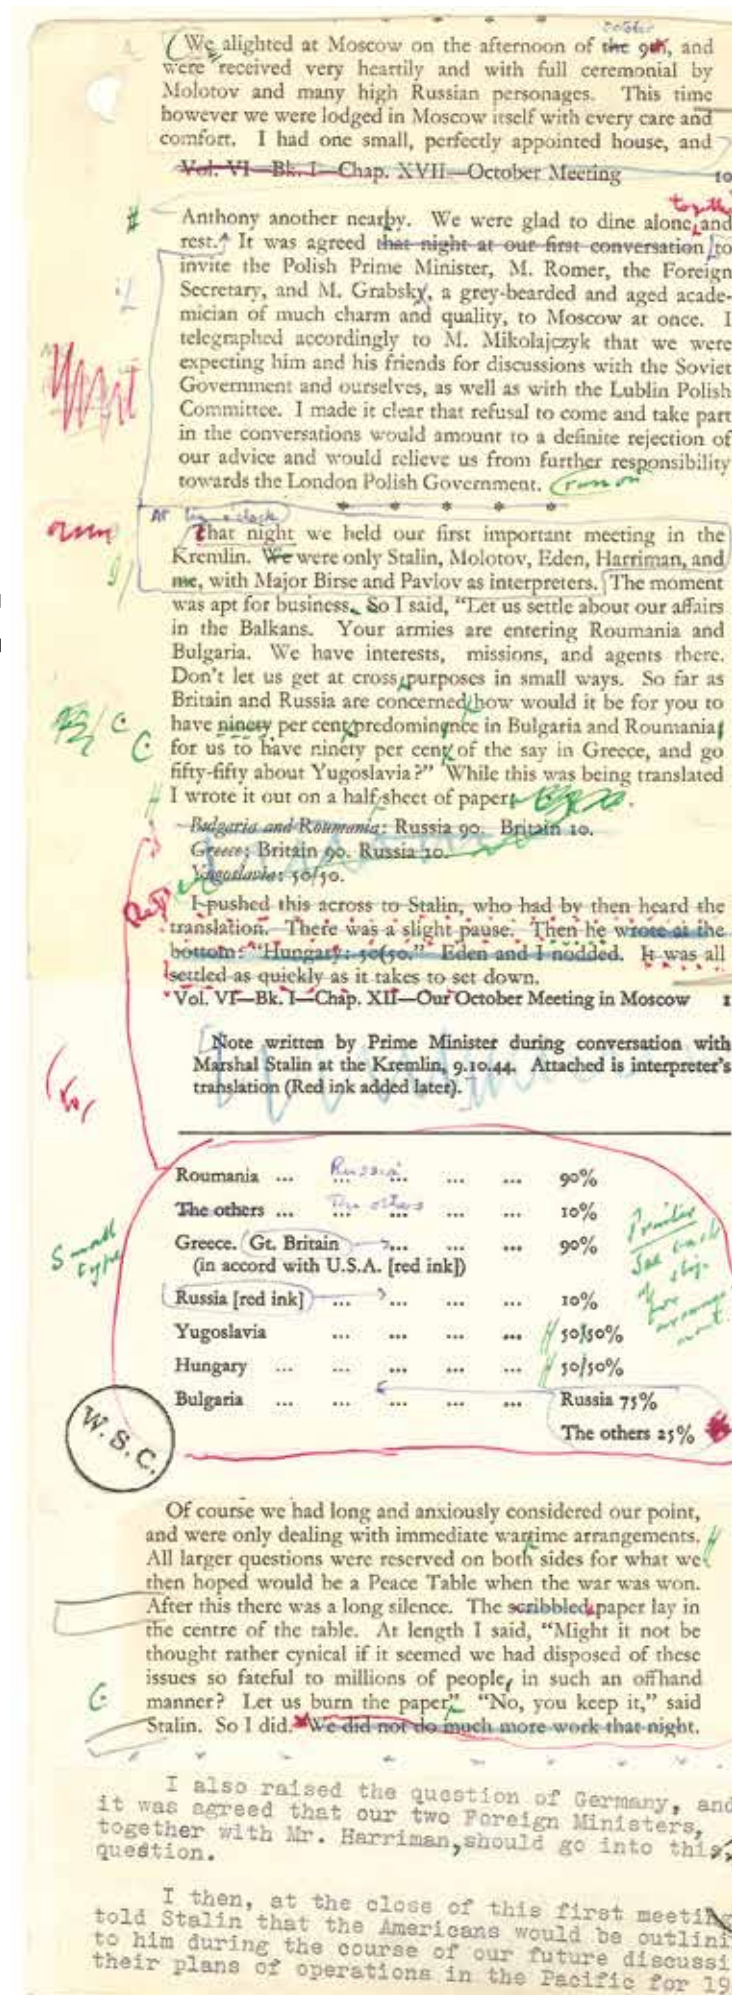 October
(We alighted at Moscow on the afternoon of the 9th, and
were received very heartily and with full ceremonial by
Molotov and many high Russian personages. This time
however we were lodged in Moscow itself with every care and
comfort. I had one small, perfectly appointed house, and
Vol. VI—Bk. I—Chap. XVII—October Meeting 10
together
# Anthony another nearby. We were glad to dine alone, and
rest. It was agreed that night at our first conversation to
invite the Polish Prime Minister, M. Romer, the Foreign
Secretary, and M. Grabsky, a grey-bearded and aged acade-
mician of much charm and quality, to Moscow at once. I
telegraphed accordingly to M. Mikolajczyk that we were
expecting him and his friends for discussions with the Soviet
Government and ourselves, as well as with the Lublin Polish
Committee. I made it clear that refusal to come and take part
in the conversations would amount to a definite rejection of
our advice and would relieve us from further responsibility
towards the London Polish Government. run on
* * * * *
At ten o'clock
That night we held our first important meeting in the
Kremlin. We were only Stalin, Molotov, Eden, Harriman, and
me, with Major Birse and Pavlov as interpreters. The moment
was apt for business. So I said, “Let us settle about our affairs
in the Balkans. Your armies are entering Roumania and
Bulgaria. We have interests, missions, and agents there.
Don’t let us get at cross purposes in small ways. So far as
Britain and Russia are concerned how would it be for you to
have ninety per cent predominence in Bulgaria and Roumania
for us to have ninety per cent of the say in Greece, and go
fifty-fifty about Yugoslavia?” While this was being translated
I wrote it out on a half sheet of paper
Bulgaria and Roumania: Russia 90. Britain 10.
Greece: Britain 90. Russia 10.
Yugoslavia: 50/50.
I pushed this across to Stalin, who had by then heard the
translation. There was a slight pause. Then he wrote at the
bottom: “Hungary: 50(50.” Eden and I nodded. It was all
settled as quickly as it takes to set down.
Vol. VI—Bk. I—Chap. XII—Our October Meeting in Moscow 1
Note written by Prime Minister during conversation with
Marshal Stalin at the Kremlin, 9.10.44. Attached is interpreter’s
translation (Red ink added later).
Roumania ... Russia ... ... ... 90%
The others ... The others ... ... ... 10%
Greece. Gt. Britain ... ... ... 90%
(in accord with U.S.A. [red ink])
Russia [red ink] ... ... ... ... 10%
Yugoslavia ... ... ... ... 50/50%
Hungary ... ... ... ... ... 50/50%
Bulgaria ... ... ... ... ... Russia 75%
The others 25%
Small
type
Printer
See end
of slip
for
arrange
ment.
W. S. C.
Of course we had long and anxiously considered our point,
and were only dealing with immediate wartime arrangements.
All larger questions were reserved on both sides for what we
then hoped would be a Peace Table when the war was won.
After this there was a long silence. The scribbled paper lay in
the centre of the table. At length I said, “Might it not be
thought rather cynical if it seemed we had disposed of these
issues so fateful to millions of people, in such an offhand
manner? Let us burn the paper” “No, you keep it,” said
Stalin. So I did. We did not do much more work that night.
I also raised the question of Germany, and
it was agreed that our two Foreign Ministers,
together with Mr. Harriman, should go into this
question.
I then, at the close of this first meeting
told Stalin that the Americans would be outlini
to him during the course of our future discussi
their plans of operations in the Pacific for 19